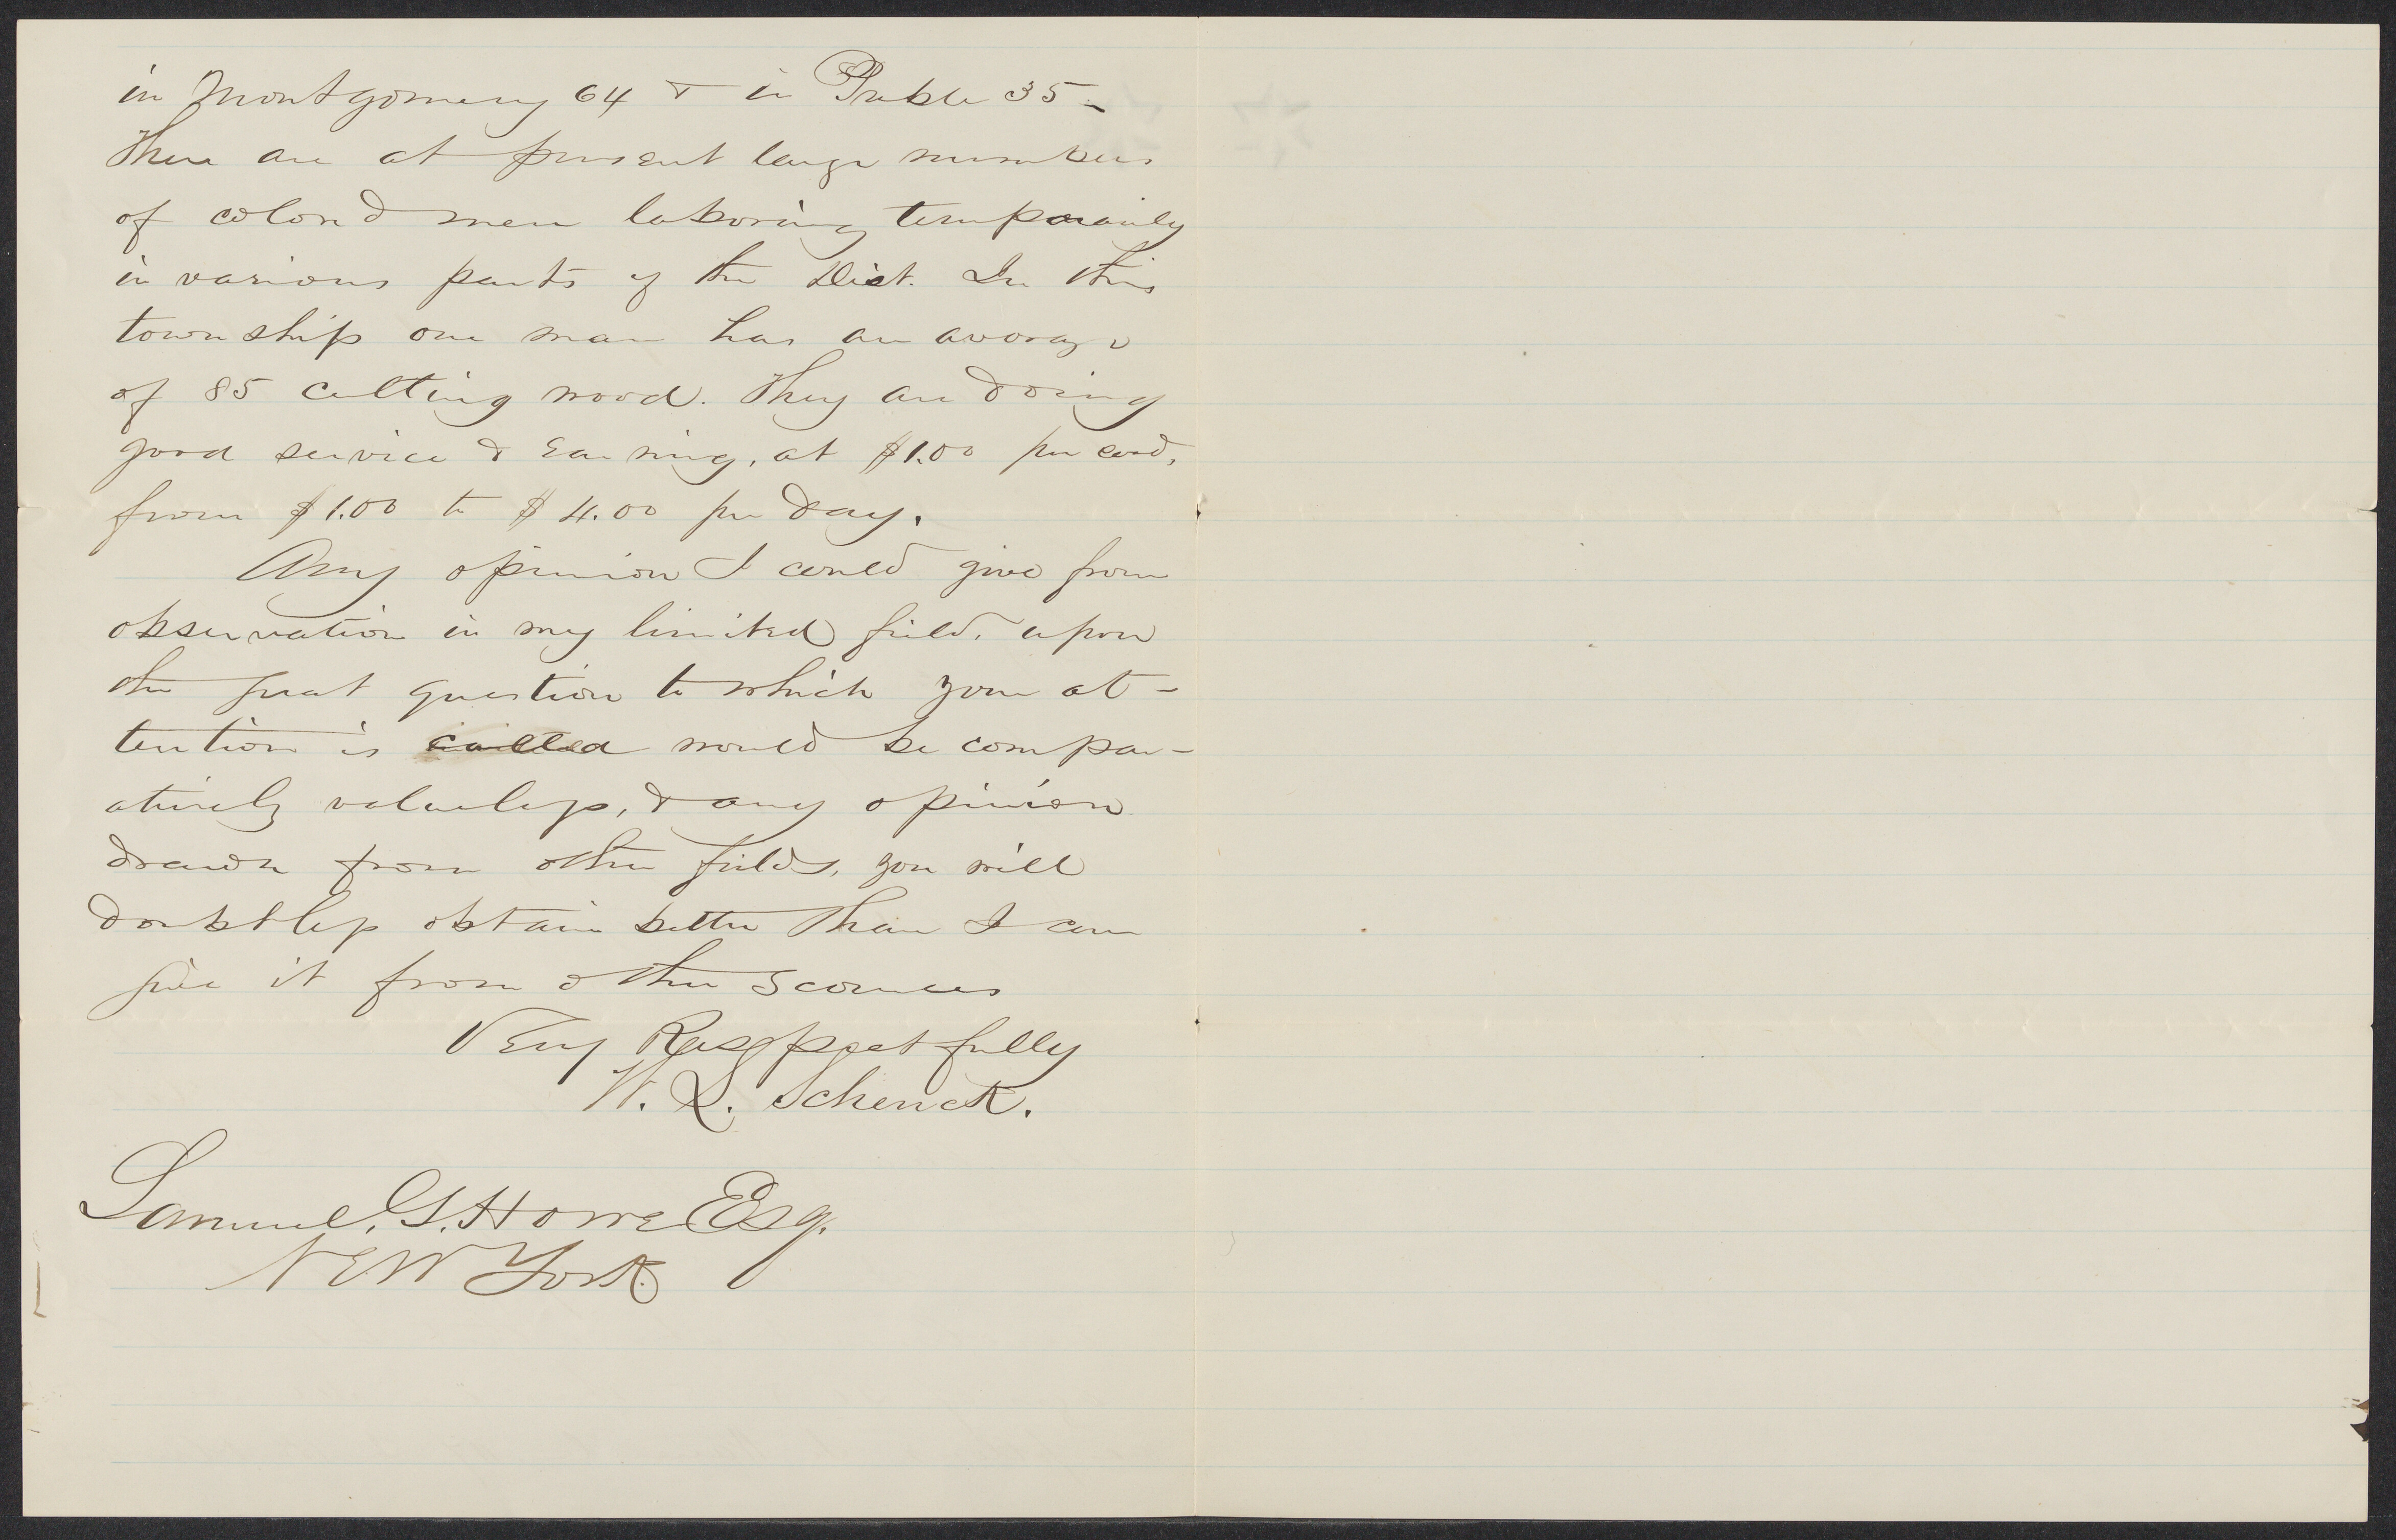 in Montgomery 64 & in Preble 35 -
There are at present large numbers
of colored men laboring temporarily
in various parts of the Dist. In this
township one man has an average
of 85 cutting wood. They are doing
good service & earning, at $1.00 per cord,
from $1.00 to $4.00 per day.
Any opinion I could give from
observation in my limited field, upon
the great question to which your at-
tention is called would be compar-
atively valueless, & any opinion
drawn from other fields, you will
doubtless obtain better than I can
give it from other sources
Very Respectfully
W. L. Schenck.
Samuel. G. Howe Esq.
New York